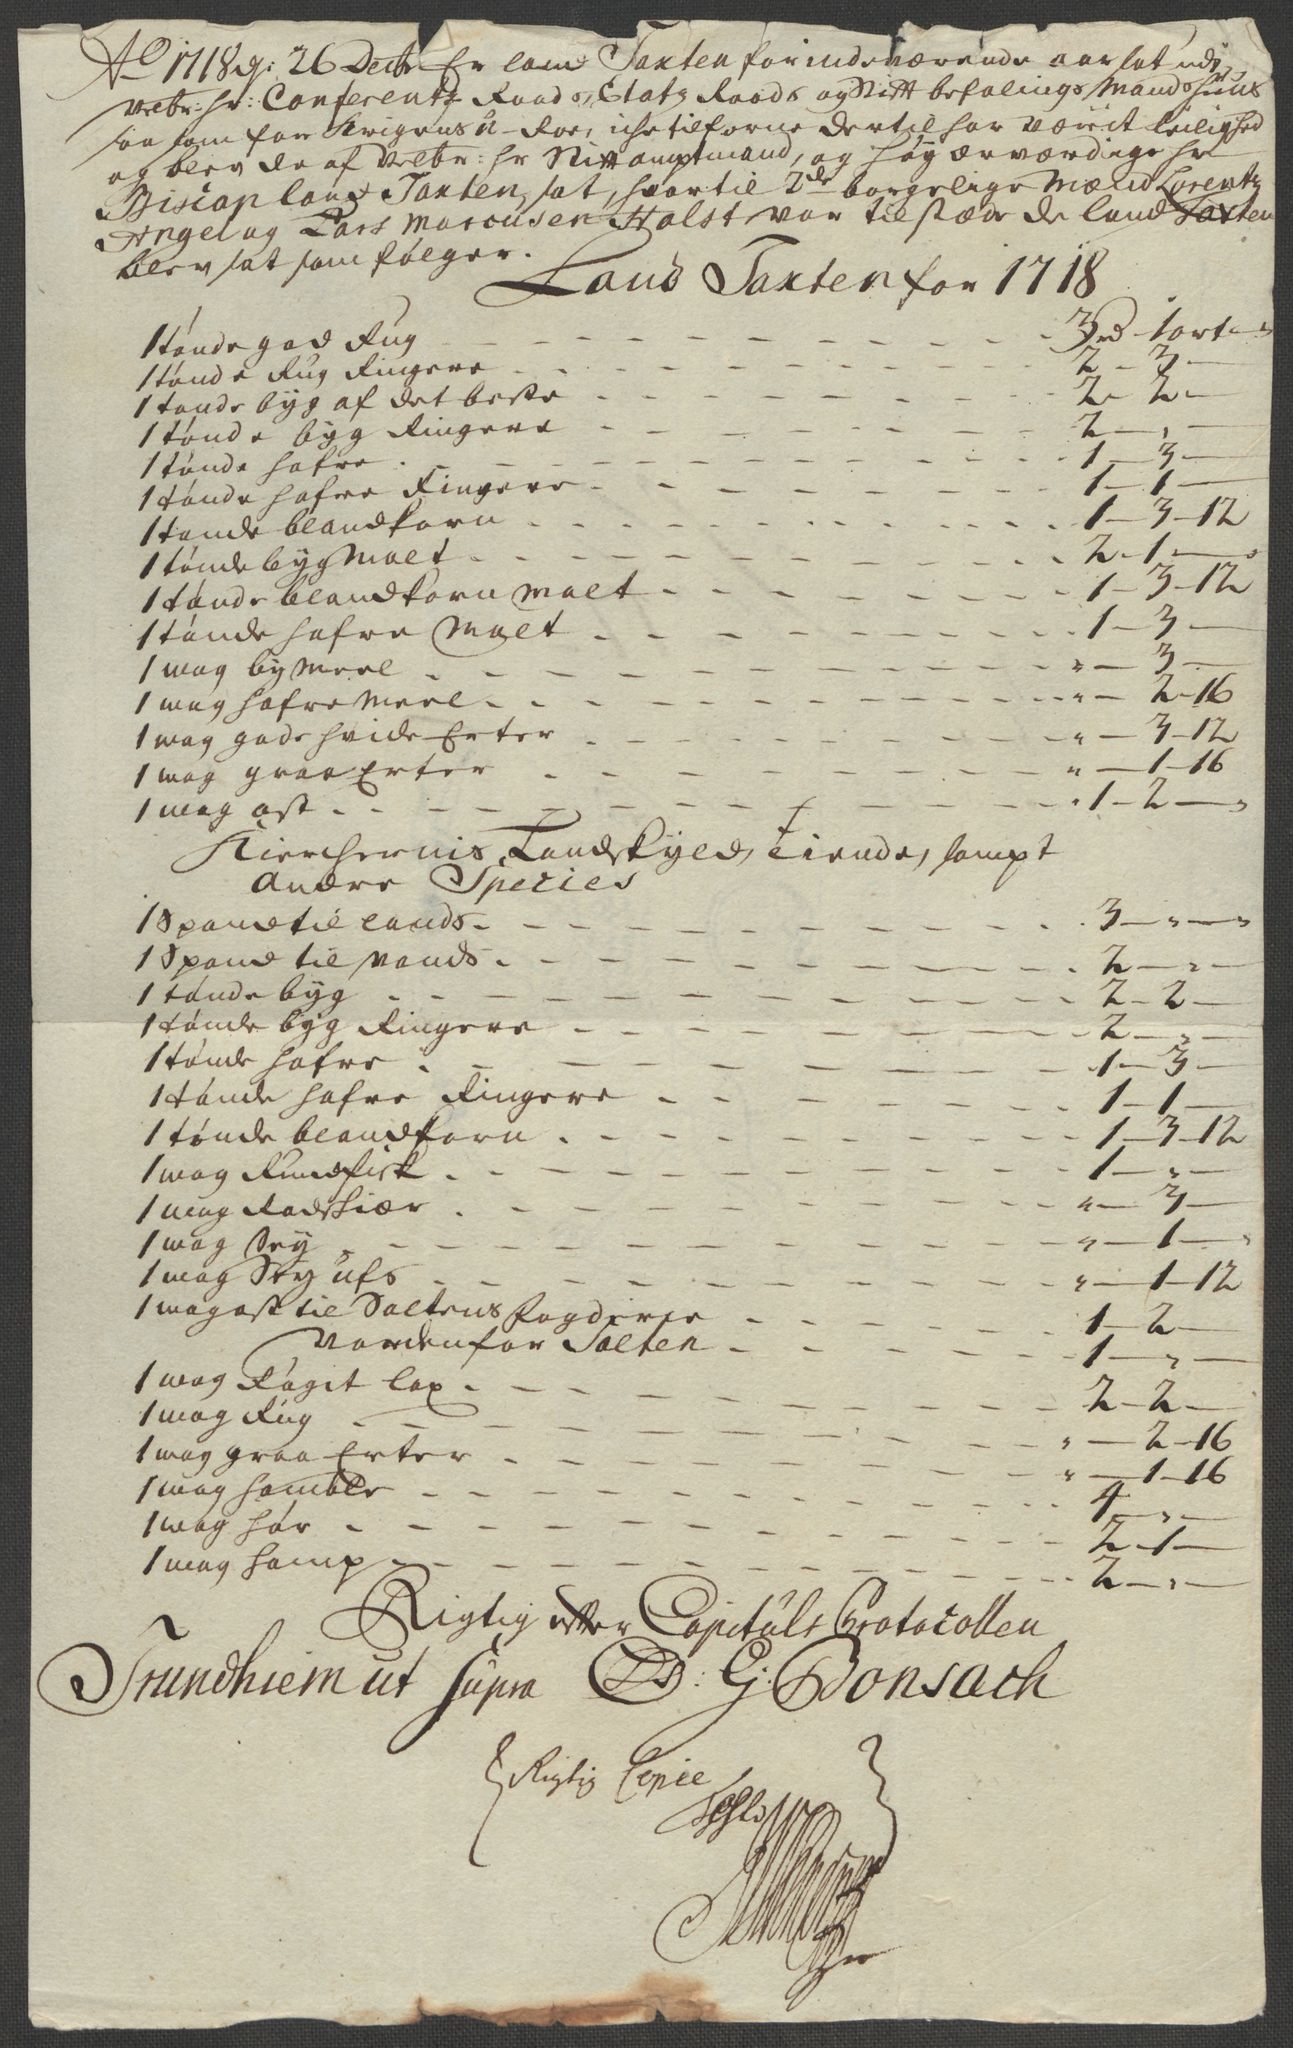 Ao 1718 d: 26 Decbr Er land Taxten for indeværende aar sat udj
velbr: hr: Conferentz Raads, Etatz Raads og Stift befalings Mands huus
saa som for Krigens u-Roe, iche tilforne dertil har været leilighed
og blev da af velbr: hr Stiftamptmand, og høyærværdige hr
Biscop land Taxten sat, hvortil 2de borgelige Mænd Lorentz
Angel og Lars Marcusen Holst var tilstæde, da land Taxten
blev sat som følger.
Land Taxten for 1718
1 tønde god Rug - - - 3 rd - 1 ort -"
1 tønde Rug Ringere - - - 2 - 3 -
1 tønde byg af det beste - - - 2 - 2 -
1 tønde byg Ringere - - - 2 - " -
1 tønde hafre - - - 1 - 3 -
1 tønde hafre Ringere - - - 1 - 1 -
1 tønde blandkorn - - - 1 - 3 - 12
1 tønde byg Malt - - - 2 - 1 - "
1 tønde blandkorn malt - - - 1 - 3 - 12
1 tønde hafre Malt - - - 1 - 3 -
1 wog byg Meel - - - " - 3 -
1 wog hafre Meel - - - " - 2 - 16
1 wog gode hvide Erter - - - " - 3 - 12
1 wog graa Erter - - - " - 1 - 16
1 wog ost - - - 1 - 2 - "
Kierchernis Landskyld, tiende, sampt
Andre Species
1 Spand til lands - - - 3 - " - "
1 Spand til vands - - - 2 - " -
1 tønde byg - - - 2 - 2 -
1 tønde byg Ringere - - - 2 - " -
1 tønde hafre - - - 1 - 3 -
1 tønde hafre Ringere - - - 1 - 1 -
1 tønde blandkorn - - - 1 - 3 - 12
1 wog Rundfisk - - - 1 - " -
1 wog Rodskiær - - - " - 3 -
1 wog Sey - - - " - 1 - "
1 wog Sey ufs - - - " - 1 - 12
1 wog ost til Saltens fogderie - - - 1 - 2 -
Norden for Salten - - - 1 - " -
1 wog Røgit lax - - - 2 - 2 -
1 wog Rug - - - " - 2 - 16
1 wog graa Erter - - - " - 1 - 16
1 wog homble - - - 4 - " -
1 wog hør - - - 2 - 1 -
1 wog hamp - - - 2 - " -
Rigtig efter Capituls Protocollen
Trundhiem ut supra D: G: Bonsach
Rigtig Copie